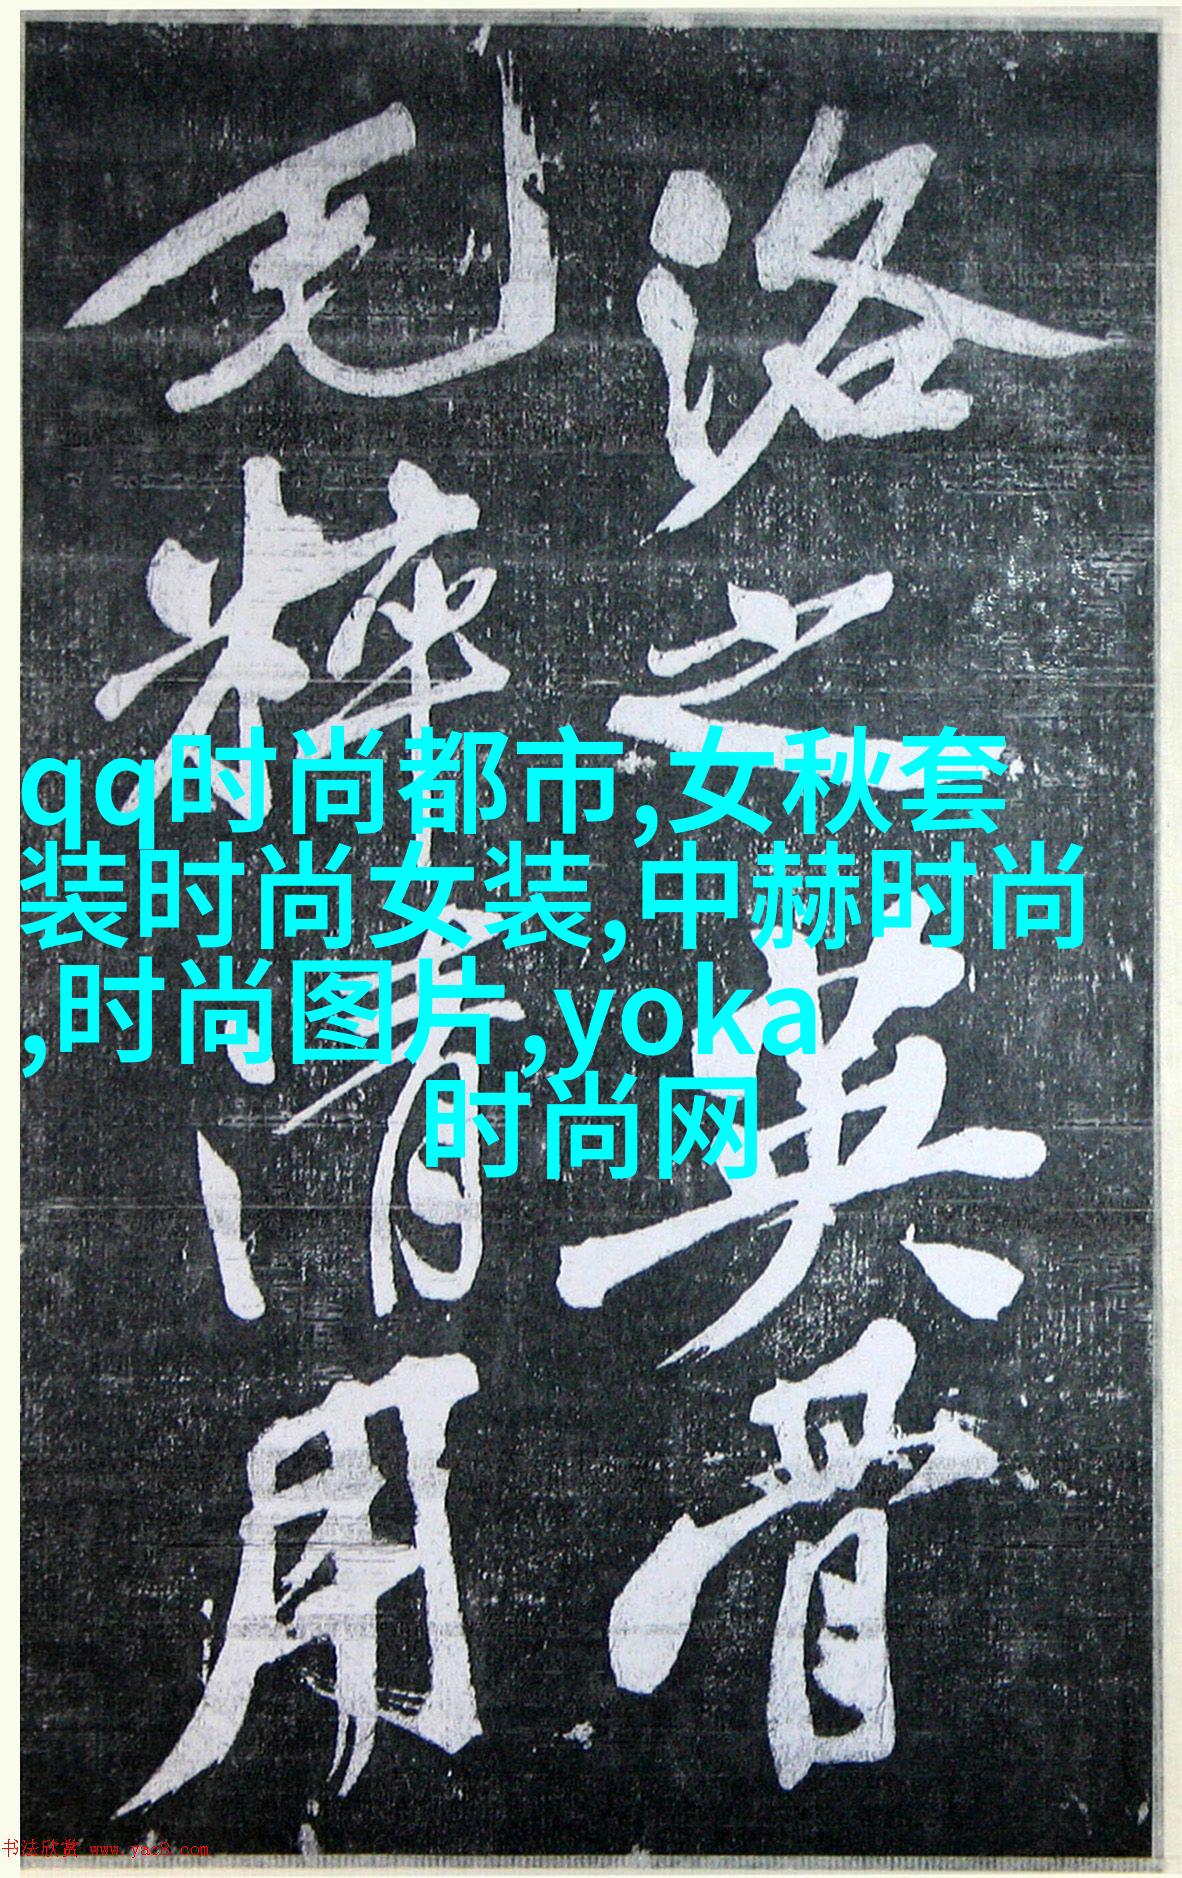 洛之英骨
毛粹清用
qq时尚都市,女秋套
装时尚女装,中赫时尚
,时尚图片,yoka
时尚网
书法欣赏 www.yac8.com